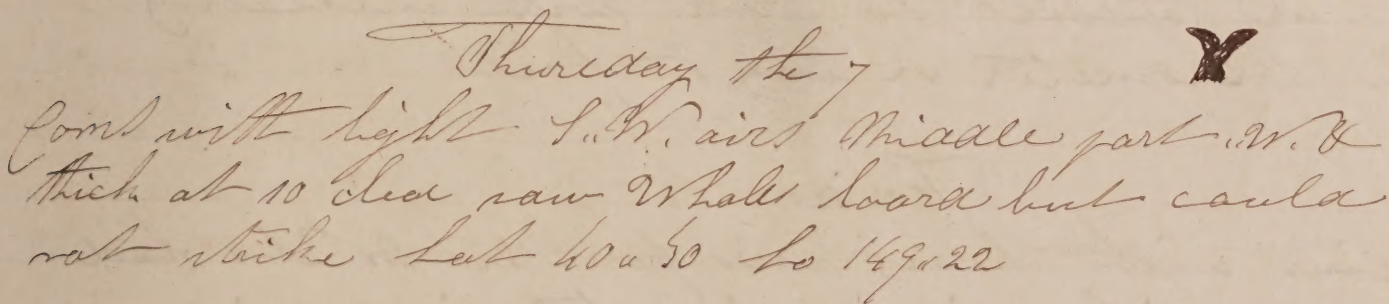 Thursday the 7
Coms with light S.W. airs Middle part .W. &
thick at 10 clea saw Whales loard but could
not strike Lat 40 " 50 Lo 149 " 22